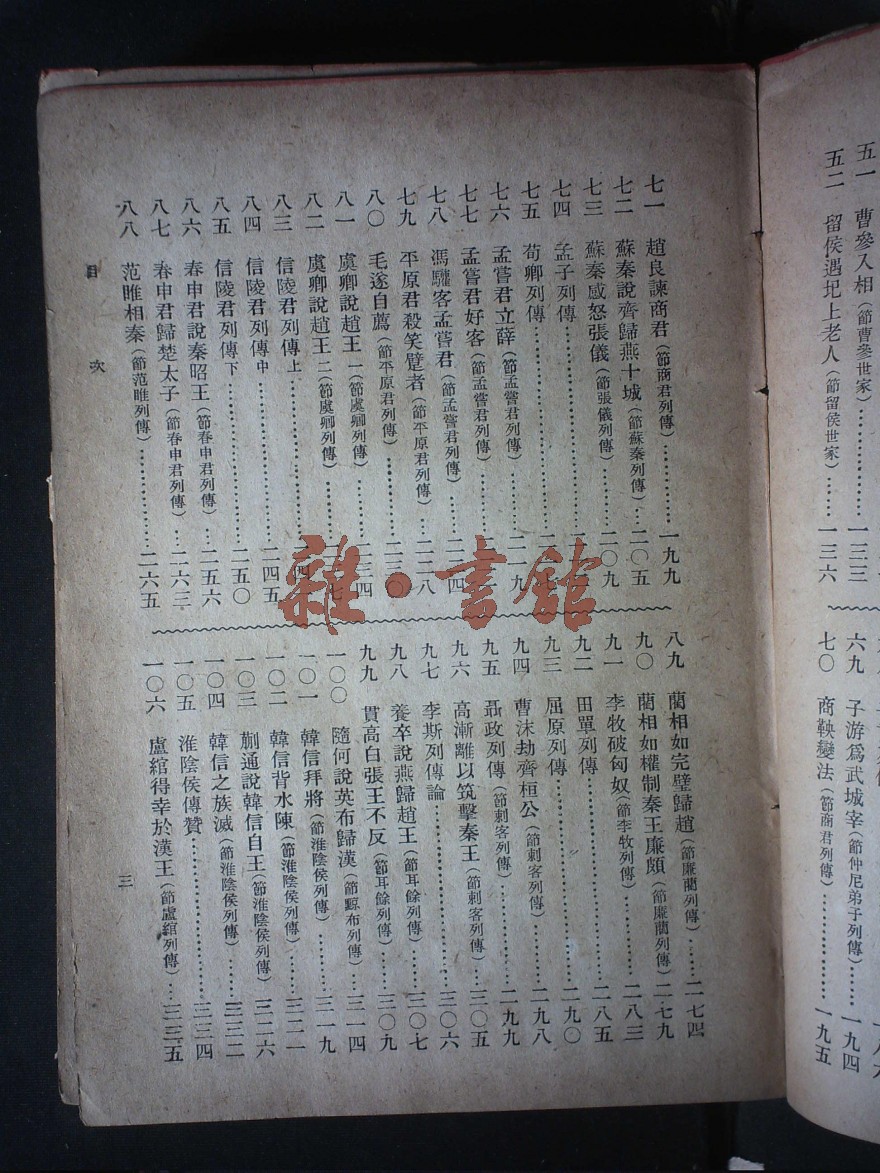 五一 曹參入相(節曹參世家)…………一三三
五二 留侯遇圯上老人(節留侯世家)……一三六
六九 子游爲武城宰(節仲尼弟子列傳)……一九四
七〇 商鞅變法(節商君列傳)……一九五
七一 趙良諫商君(節商君列傳)…………一九九
七二 蘇秦說齊歸燕十城(節蘇秦列傳)…二〇五
七三 蘇秦感怒張儀(節張儀列傳)………二〇九
七四 孟子列傳…………………二一
七五 荀卿列傳…………………二一
七六 孟嘗君立薛(節孟嘗君列傳)………二一九
七七 孟嘗君好客(節孟嘗君列傳)………二二
七八 馮驩客孟嘗君(節孟嘗君列傳)……二二四
七九 平原君殺笑躄者(節平原君列傳)…二二八
八〇 毛遂自薦(節平原君列傳)…………二三〇
八一 虞卿說趙王一(節虞卿列傳)………二三四
八二 虞卿說趙王二(節虞卿列傳)………二三七
八三 信陵君列傳上…………………二四
八四 信陵君列傳中…………………二四五
八五 信陵君列傳下…………………二五〇
八六 春申君說秦昭王(節春申君列傳)…二五六
八七 春申君歸楚太子(節春申君列傳)…二六三
八八 范睢相秦(節范睢列傳)……………二六五
八九 藺相如完璧歸趙(節廉藺列傳)……二七四
九〇 藺相如權制秦王廉頗(節廉藺列傳)二七九
九一 李牧破匈奴(節李牧列傳)…………二八三
九二 田單列傳…………………二八五
九三 屈原列傳…………………二九〇
九四 曹沫劫齊桓公(節刺客列傳)………二九八
九五 聶政列傳(節刺客列傳)……………二九九
九六 高漸離以筑擊秦王(節刺客列傳)…三〇五
九七 李斯列傳論…………………三〇六
九八 養卒說燕歸趙王(節耳餘列傳)……三〇七
九九 貫高白張王不反(節耳餘列傳)……三〇九
一〇〇 隨何說英布歸漢(節黥布列傳)…三一四
一〇一 韓信拜將(節淮陰侯列傳)………三一九
一〇二 韓信背水陳(節淮陰侯列傳)……三二一
一〇三 蒯通說韓信自王(節淮陰侯列傳)三二六
一〇四 韓信之族滅(節淮陰侯列傳)……三三二
一〇五 淮陰侯傳贊…………………三三四
一〇六 盧綰得幸於漢王(節盧綰列傳)…三三五
目次
三
雜·書館